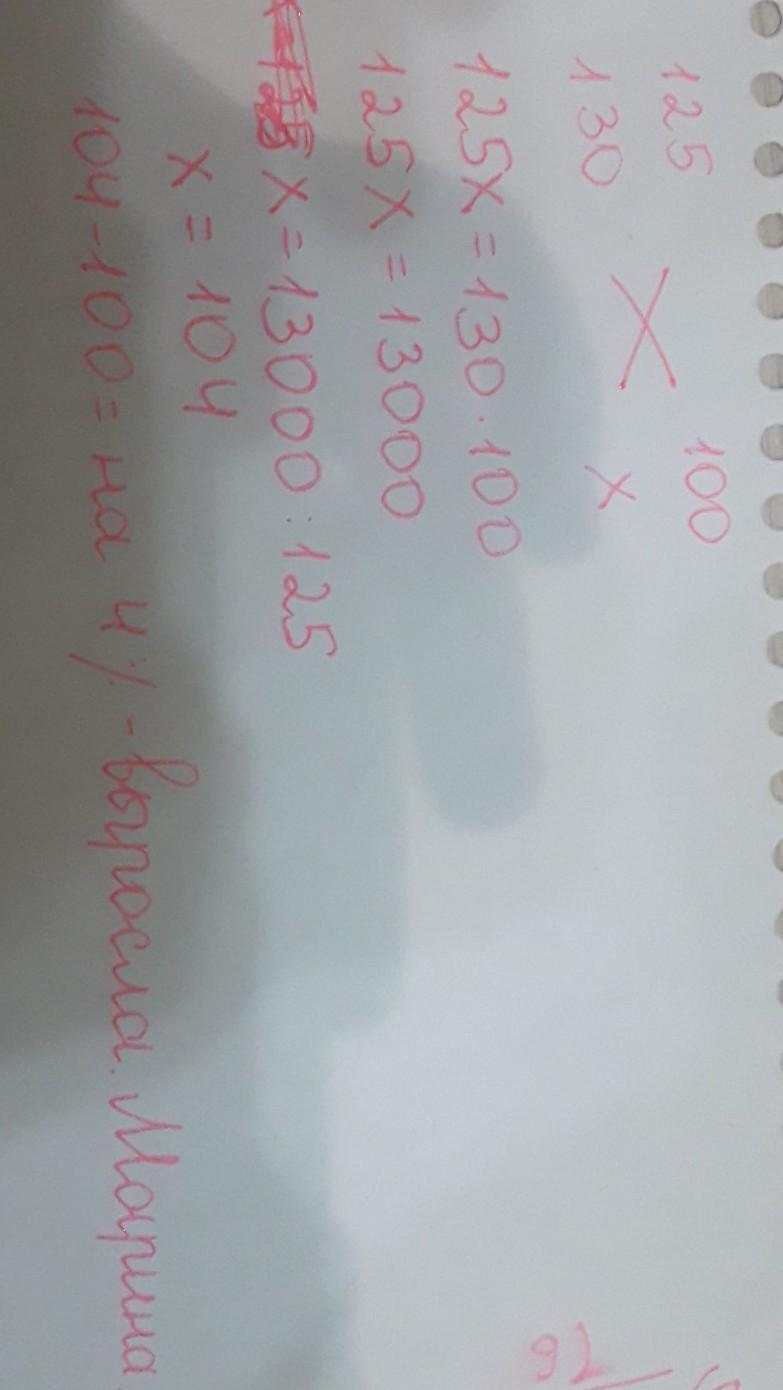 125 100
130 x
125x = 130 · 100
125x = 13000
x = 13000 : 125
x = 104
104 - 100 = на 4% - выросла Марина